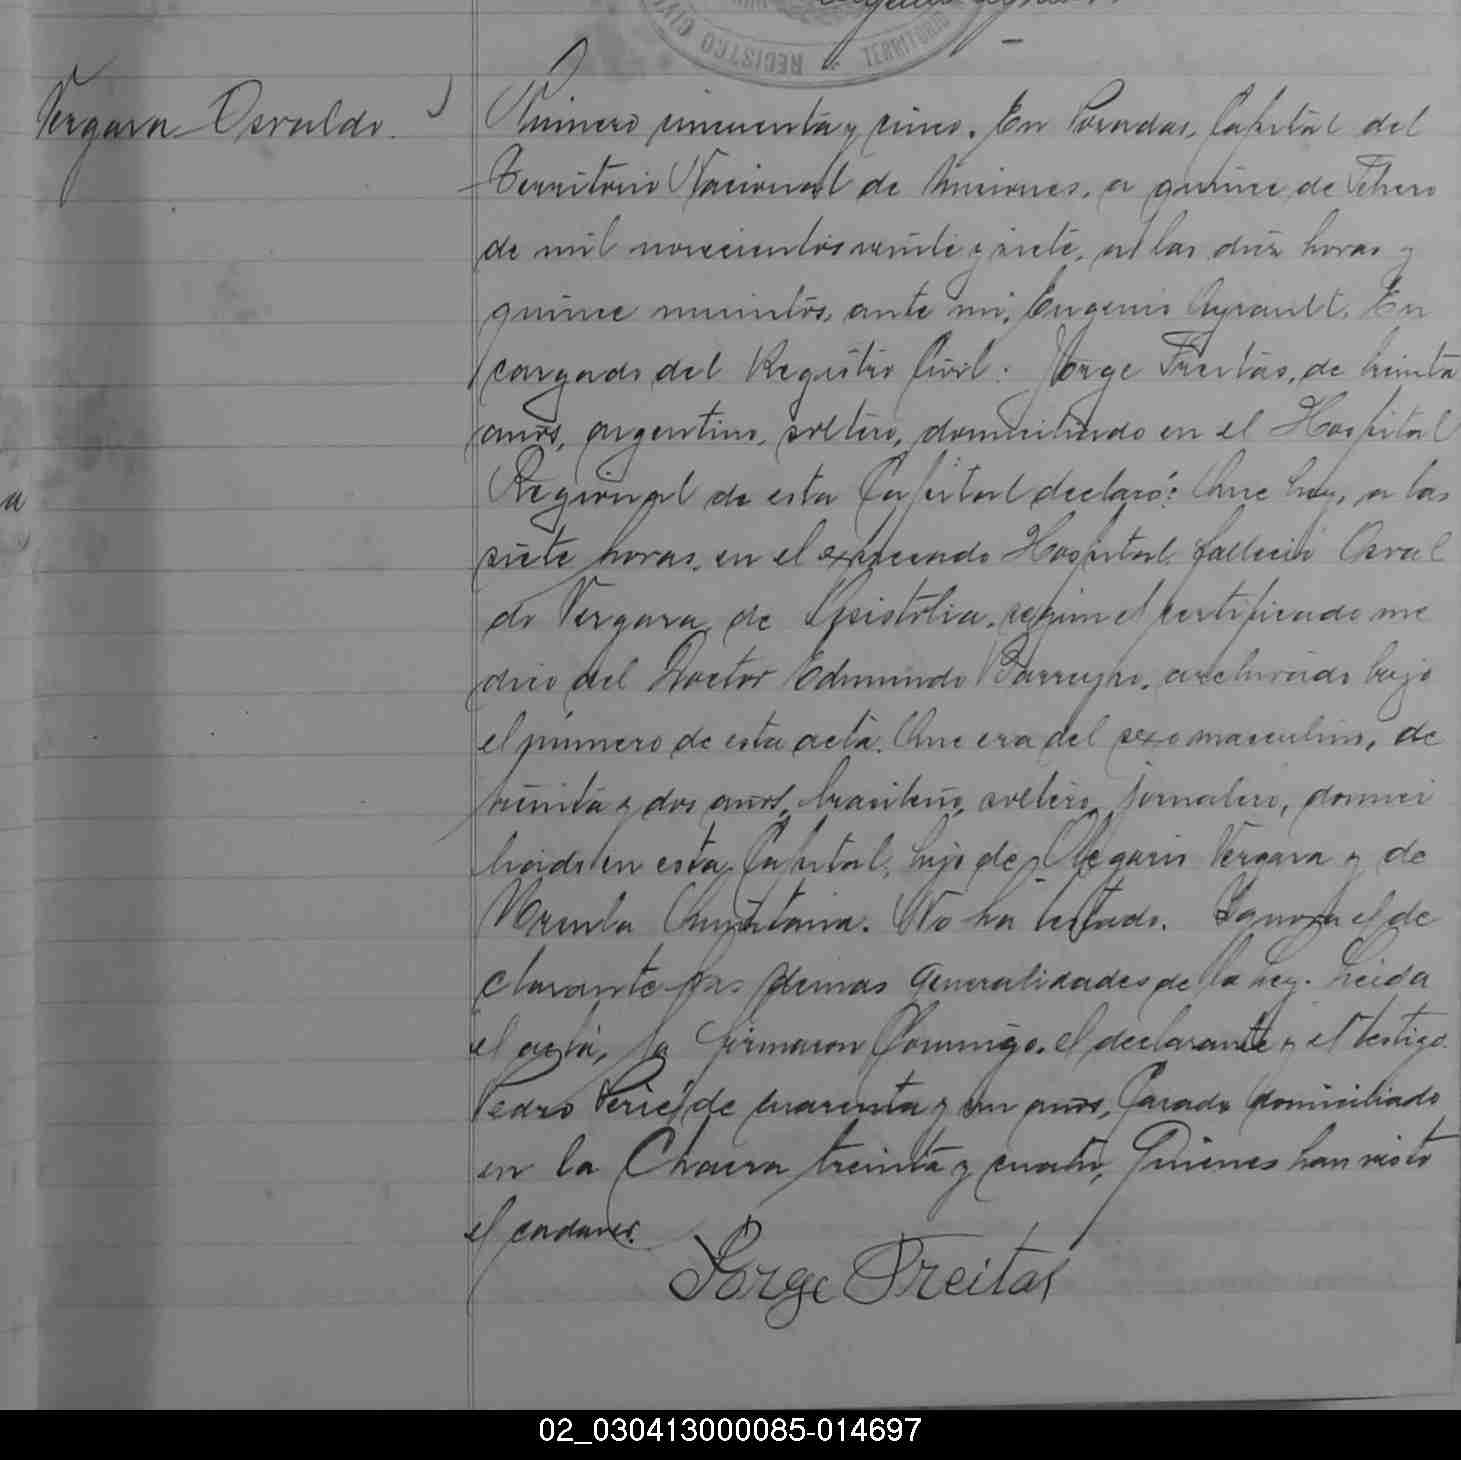 REGISTRO CIVIL * TERRITORIO
Vergara Osvaldo.
Número cincuenta y cinco. En Posadas, Capital del
Territorio Nacional de Misiones, a quince de Febrero
de mil novecientos veinte y siete, a las diez horas y
quince minutos, ante mi, Eugenio Ayrault, En
cargado del Registro Civil: Jorge Freitas, de treinta
años, argentino, soltero, domiciliado en el Hospital
Regional de esta Capital declaró: Que hoy, a las
siete horas, en el expresado Hospital falleció Osval
do Vergara, de Asistolia, según el certificado me
dico del Doctor Edmundo Barreyro, archivado bajo
el número de esta acta. Que era del sexo masculino, de
treinta y dos años, brasileño, soltero, jornalero, domici
liado en esta Capital, hijo de Olegario Vergara y de
Quintana. No ha testado. Ignora el de
clarante las demas generalidades de la ley. Leida
el acta, la firmaron conmigo, el declarante y el testigo
Pedro de cuarenta y un años, Casado domiciliado
en la Chacra treinta y cuatro, Quienes han visto
el cadaver.
Jorge Freitas
02_030413000085-014697